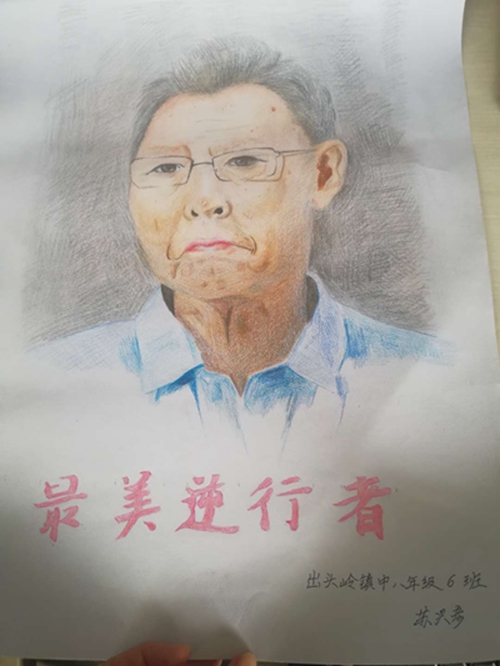 最美逆行者
出头岭镇中八年级6班